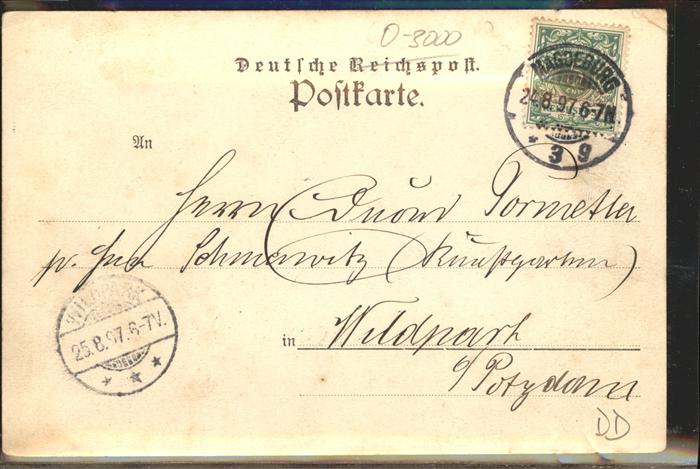 O-3000
Deutsche Reichspost.
Postkarte.
MAGDEBURG
24.8.97.6-7N.
* * 3 g
An
Herrn
p. Schmerwitz (Kunstgarten)
WILDPARK
25.8.97.6-7V.
* * *
in Wildpark
b/ Potsdam
DD